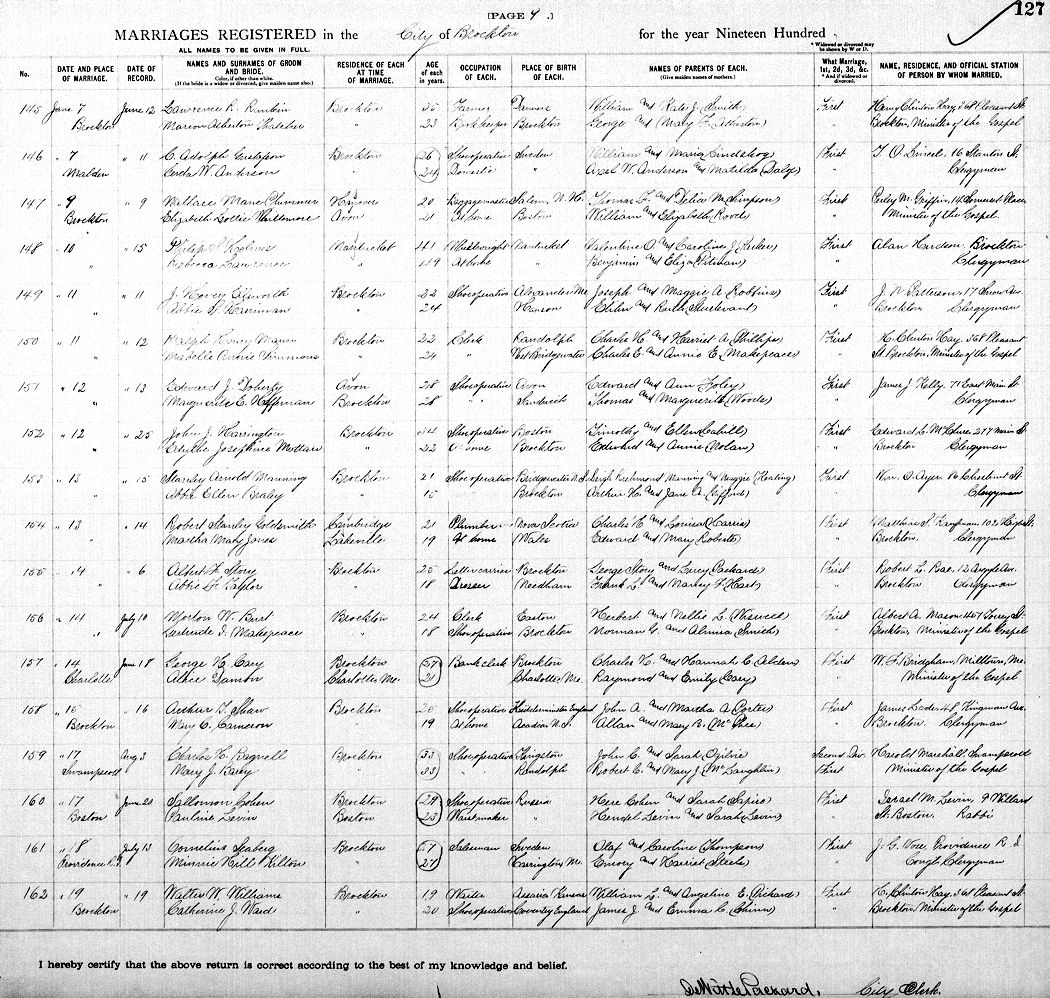 [PAGE 9 .]
127
MARRIAGES REGISTERED in the City of Brockton for the year Nineteen Hundred
ALL NAMES TO BE GIVEN IN FULL.
* Widowed or divorced may be shown by W or D.
No. DATE AND PLACE OF MARRIAGE. DATE OF RECORD. NAMES AND SURNAMES OF GROOM AND BRIDE. Color, if other than white. (If the bride is a widow or divorced, give maiden name also.) RESIDENCE OF EACH AT TIME OF MARRIAGE. AGE of each in years. OCCUPATION OF EACH. PLACE OF BIRTH OF EACH. NAMES OF PARENTS OF EACH. (Give maiden names of mothers.) What Marriage, 1st, 2d, 3d, &c. * And if widowed or divorced. NAME, RESIDENCE, AND OFFICIAL STATION OF PERSON BY WHOM MARRIED.
145 June 7 June 12 Lawrence R. Brockton 25 Farmer William and Kate J. (Smith) First Henry Clinton Hay, 368 Pleasant St
Brockton Marion Atherton Thatcher " 23 Bookkeeper Brockton George and (Mary F. Atherton) " Brockton, Minister of the Gospel
146 " 7 " 11 C. Adolph Gustafson Brockton 26 Shoeoperative Sweden William and Maria (Lindskog) First 16 Stanton St.
Malden Gerda W. Anderson " 24 Domestic " Axel W. Anderson and Matilda (Daly) " Clergyman
147 " 9 " 9 Wallace Mann Hanover 20 Baggagemaster Salem, N. H. Thomas F. and Delia M. (Simpson) First Perley M. Griffin, 14 Place
Brockton Elizabeth Lottie Whittemore Avon 21 At home Boston William and Elizabeth " Minister of the Gospel
148 " 10 " 15 Philip S. Nantucket 41 Nantucket Valentine O. and Caroline J. First Alan Hudson, Brockton
" Rebecca Lawrence " 49 At home " Benjamin and Eliza (Pitman) " Clergyman
149 " 11 " 11 J. Hovey Ellsworth Brockton 22 Shoeoperative Alexander Me. Joseph and Maggie A. Robbins) First J. N. Patterson, 17
" Abbie S. " 24 " Hanson and Ruth Sturtevant) " Brockton Clergyman
150 " 11 " 12 Ralph Henry Mann Brockton 22 Clerk Randolph Charles H. and Harriet A. (Phillips) First H. Clinton Hay, 368 Pleasant
" Mabelle Simmons " 24 " West Bridgewater Charles E. and Annie E. Makepeace) " St Brockton, Minister of the Gospel
151 " 12 " 13 Edward J. Doherty Avon 28 Shoeoperative Avon Edward and Ann Foley) First James J. Kelly, 71 East Main St
" Marguerite E. Heffernan Brockton 28 " Sandwich Thomas and Marguerite (Woods) " Clergyman
152 " 12 " 25 John J. Harrington Brockton 34 Shoeoperative Boston Timothy and Ellen (Cahill) First Edward L. McClure 277 Main St
" Edythe Josephine " 22 At home Brockton Edward and Annie (Nolan) " Brockton Clergyman
153 " 13 " 15 Stanley Arnold Manning Brockton 21 Shoeoperative Bridgewater N.S. Leigh Richmond Manning and Maggie (Keating) First Wm. O. Ayer, 16 Chestnut St
" Abbie Ellen Braley " 15 Brockton Arthur H. and Jane A. (Gifford) " Clergyman
154 " 13 " 14 Robert Stanley Goldsmith Cambridge 21 Plumber Nova Scotia Charles H. and Louisa (Harris) First
" Martha Mary Jones Lakeville 19 At home Wales Edward and Mary Roberts) " Brockton, Clergyman
155 " 14 " 6 Albert F. Story Brockton 25 Lettercarrier Brockton George Story and Lucy (Packard) First Robert L. Rae, 12 Argyle Ave.
" Abbie F. Taylor " 18 Dresser Needham Frank L. and Nancy F. Hart) " Brockton Clergyman
156 " 14 July 10 Morton W. Burt Brockton 24 Clerk Easton Herbert and Nellie L. First Albert A. Mason 457 Torrey St
" Gertrude I. Makepeace " 18 Shoeoperative Brockton Norman G. and Almira Smith) " Brockton, Minister of the Gospel
157 " 14 June 18 George H. Cary Brockton 37 Bank clerk Brockton Charles H. and Hannah C. Alden) First W. F. Bridgham, Milltown, Me.
Charlotte Alice Damon Charlotte Me. 21 Charlotte, Me. Raymond and Emily Cary) " Minister of the Gospel
158 " 15 " 16 Arthur T. Shaw Brockton 20 Shoeoperative Kidderminster England John A. and Martha A. (Porter) First James 48 Kingman Ave.
Brockton Mary C. Cameron " 19 At home Acadia N. S. Allan and Mary B. Mc Phee) " Brockton, Clergyman
159 " 17 Aug 3 Charles H. Bagnell Brockton 33 Shoeoperative Kingston John C. and Sarah Ogilvie) Second Div. Harold Marshall Swampscott
Swampscott Mary J. Barry " 33 " Randolph Robert C. and Mary J. (McLaughlin) First Minister of the Gospel
160 " 17 June 21 Sallomon Cohen Brockton 29 Shoeoperative Russia Cohen and Sarah (Sapiro) First Israel M. Levin, 9 Willard
Boston Pauline Levin Boston 25 Waistmaker " Hendel Levin and Sarah (Levin) " St. Boston. Rabbi
161 " 18 July 13 Cornelius Seaberg Brockton 57 Salesman Sweden Olaf and Caroline (Thompson) First J. C. Vose, Providence R I
Providence R.I. Minnie Hill Kilton " 27 Harrington Me. Emory and Harriet Steele) " Congl. Clergyman
162 " 19 " 19 Walter W. Williams Brockton 19 Waiter Assaria Kansas William L. and Angeline E. (Rickard) First H. Clinton Hay, 368 Pleasant St.
Brockton Catherine J. Ward " 20 Shoeoperative Coventry England James J. and Emma C. (Chinn) " Brockton, Minister of the Gospel
I hereby certify that the above return is correct according to the best of my knowledge and belief.
DeWitt C. Packard, City Clerk.